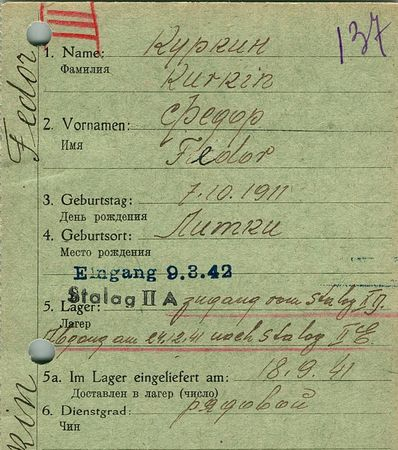 137
1. Name: Куркин
Фамилия
Kurkin
2. Vornamen: Федор
Имя
Fedor
3. Geburtstag: 7.10.1911
День рождения
4. Geburtsort: Литки
Место рождения
Eingang 9.3.42
Stalag II A
5. Lager: zugang vom Stalag
Лагерь
Abgang am 24.12.41 nach Stalag II E
5a. Im Lager eingeliefert am: 18.9.41
Доставлен в лагерь (число)
6. Dienstgrad: рядовой
Чин
Fedor
kin